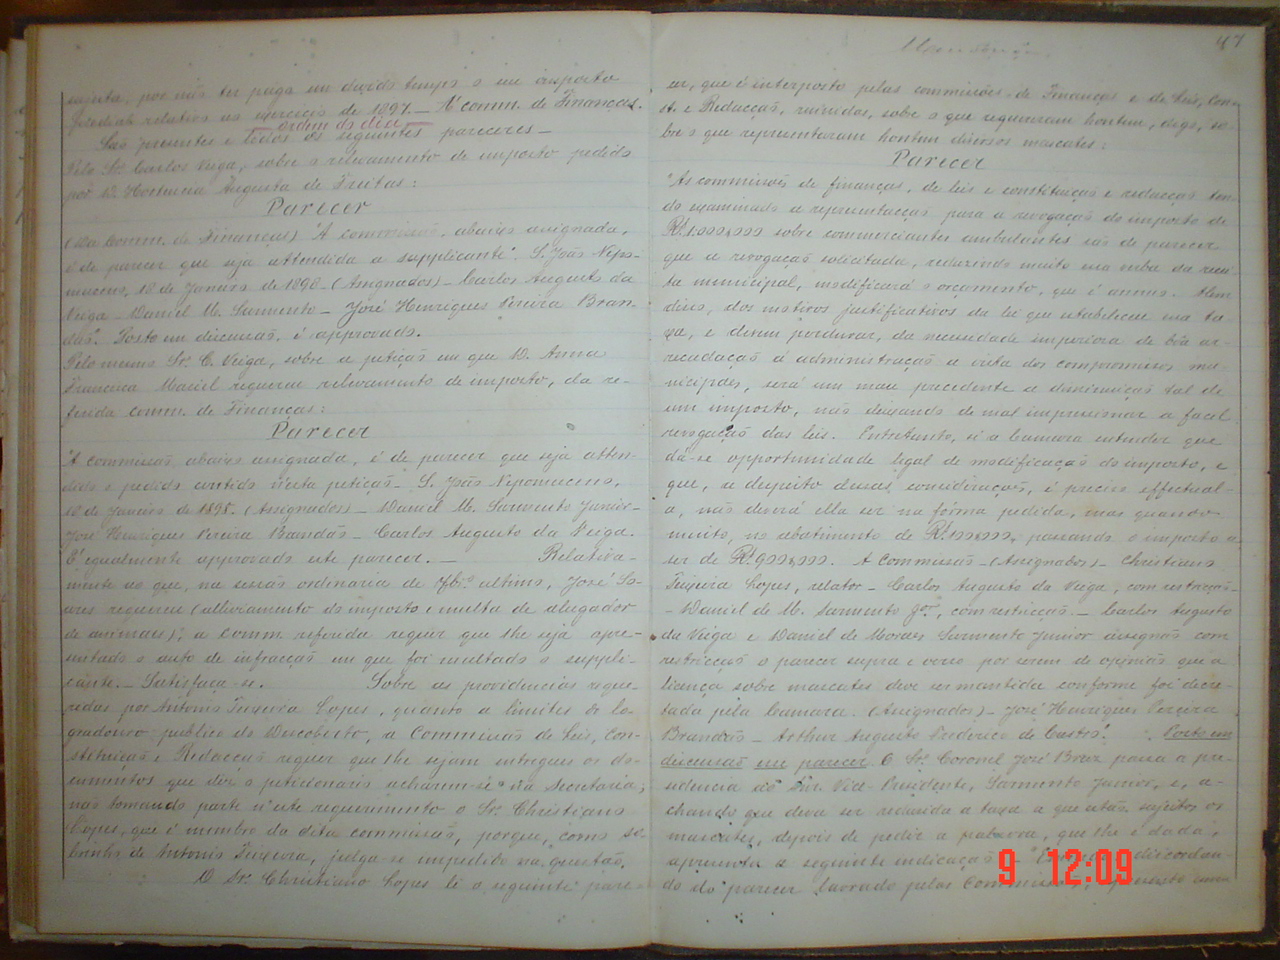 sujeita, por não ter pago em devido tempo o seu imposto
predial relativo ao exercicio de 1897. _ Á comm. de Finanças.
_ ordem do dia _
São presentes e todos os seguintes pareceres _
Pelo Sr. Carlos Veiga, sobre o relevamento de imposto pedido
por D. Augusta de Freitas:
Parecer
(Da Comm. de Finanças) "A commissão, abaixo assignada,
é de parecer que seja attendida a supplicante". S. João Nepo-
muceno, 18 de Janeiro de 1898 _ (Assignados) _ Carlos Augusto da
Veiga _ Daniel M. Sarmento _ José Henriques Pereira Bran-
dão". Posto em discussão, é approvado.
Pelo mesmo Sr. C. Veiga, sobre a petição em que D. Anna
Francisca Maciel requereu relevamento de imposto, da re-
ferida comm. de Finanças:
Parecer
"A commissão, abaixo assignada, é de parecer que seja atten-
dido o pedido contido n'esta petição _ S. João Nepomuceno,
18 de Janeiro de 1898. (Assignados) _ Daniel M. Sarmento Junior _
José Henriques Pereira Brandão _ Carlos Augusto da Veiga.
É egualmente approvado este parecer. _ Relativa-
mente ao que, na sessão ordinaria de ultimo, José So-
ares requereu (alliviamento do imposto e multa de alugador
de animaes); a comm. referida requer que lhe seja apre-
sentado o auto de infracção em que foi multado o suppli-
cante. _ Satisfaça-se. Sobre as providencias reque-
ridas por Antonio Teixeira Lopes, quanto a limites do lo-
gradouro publico do Descoberto, a Commissão de Leis, Con-
stituição e Redacção requer que lhe sejam entregues os do-
cumentos que diz o peticionario acharem-se na Secretaria;
não tomando parte n'este requerimento o Sr. Christiano
Lopes, que é membro da dita commissão, porque, como so-
brinho de Antonio Teixeira, julga-se impedido na questão.
O Sr. Christiano Lopes lê o seguinte pare-
47
cer, que é interposto pelas commissões de Finanças e de Leis, Con-
st. e Redacção, reunidas, sobre o que requereram hontem, digo, so-
bre o que representaram hontem diversos mascates:
Parecer
"As commissões de finanças, de leis e constituição e redacção ten-
do examinado a representação para a revogação do imposto de
Rs. 1:000$000 sobre commerciantes ambulantes são de parecer
que a revogação solicitada, reduzindo muito essa verba da recei-
ta municipal, modificará o orçamento, que é annuo. Alem
disso, dos motivos justificativos da lei que estabeleceu essa ta-
xa, e devem perdurar, da necessidade imperiosa de bôa ar-
recadação á administração a vista dos compromissos mu-
nicipaes, será um mau precedente a diminuição tal de
um imposto, não deixando de mal impressionar a facil
revogação das leis. Entretanto, si a Camara entender que
dá-se opportunidade legal de modificação do imposto, e
que, a despeito dessas considerações, é preciso effectual-
a, não deverá ella ser na forma pedida, mas quando
muito, no abatimento de Rs. 100$000, passando o imposto a
ser de Rs. 900$000. A Commissão _ (Assignados) _ Christiano
Teixeira Lopes, relator _ Carlos Augusto da Veiga, com restricção _
_ Daniel de M. Sarmento Jor., com restricção. _ Carlos Augusto
da Veiga e Daniel de Moraes Sarmento Junior assignão com
restricção o parecer supra e verso por serem de opinião que a
licença sobre mascates deve ser mantida conforme foi decre-
tada pela Camara. (Assignados) _ José Henriques Pereira
Brandão _ Arthur Augusto Frederico de Castro." Posto em
discussão esse parecer. O Sr. Coronel José Braz passa a pre-
sidencia ao Snr. Vice-Presidente, Sarmento Junior, e, a-
chando que deve ser reduzida a taxa a que estão sujeitos os
mascates, depois de pedir a palavra, que lhe é dada,
apresenta a seguinte indicação _ discordan-
do do parecer lavrado pelas Commissões,
9 12:09